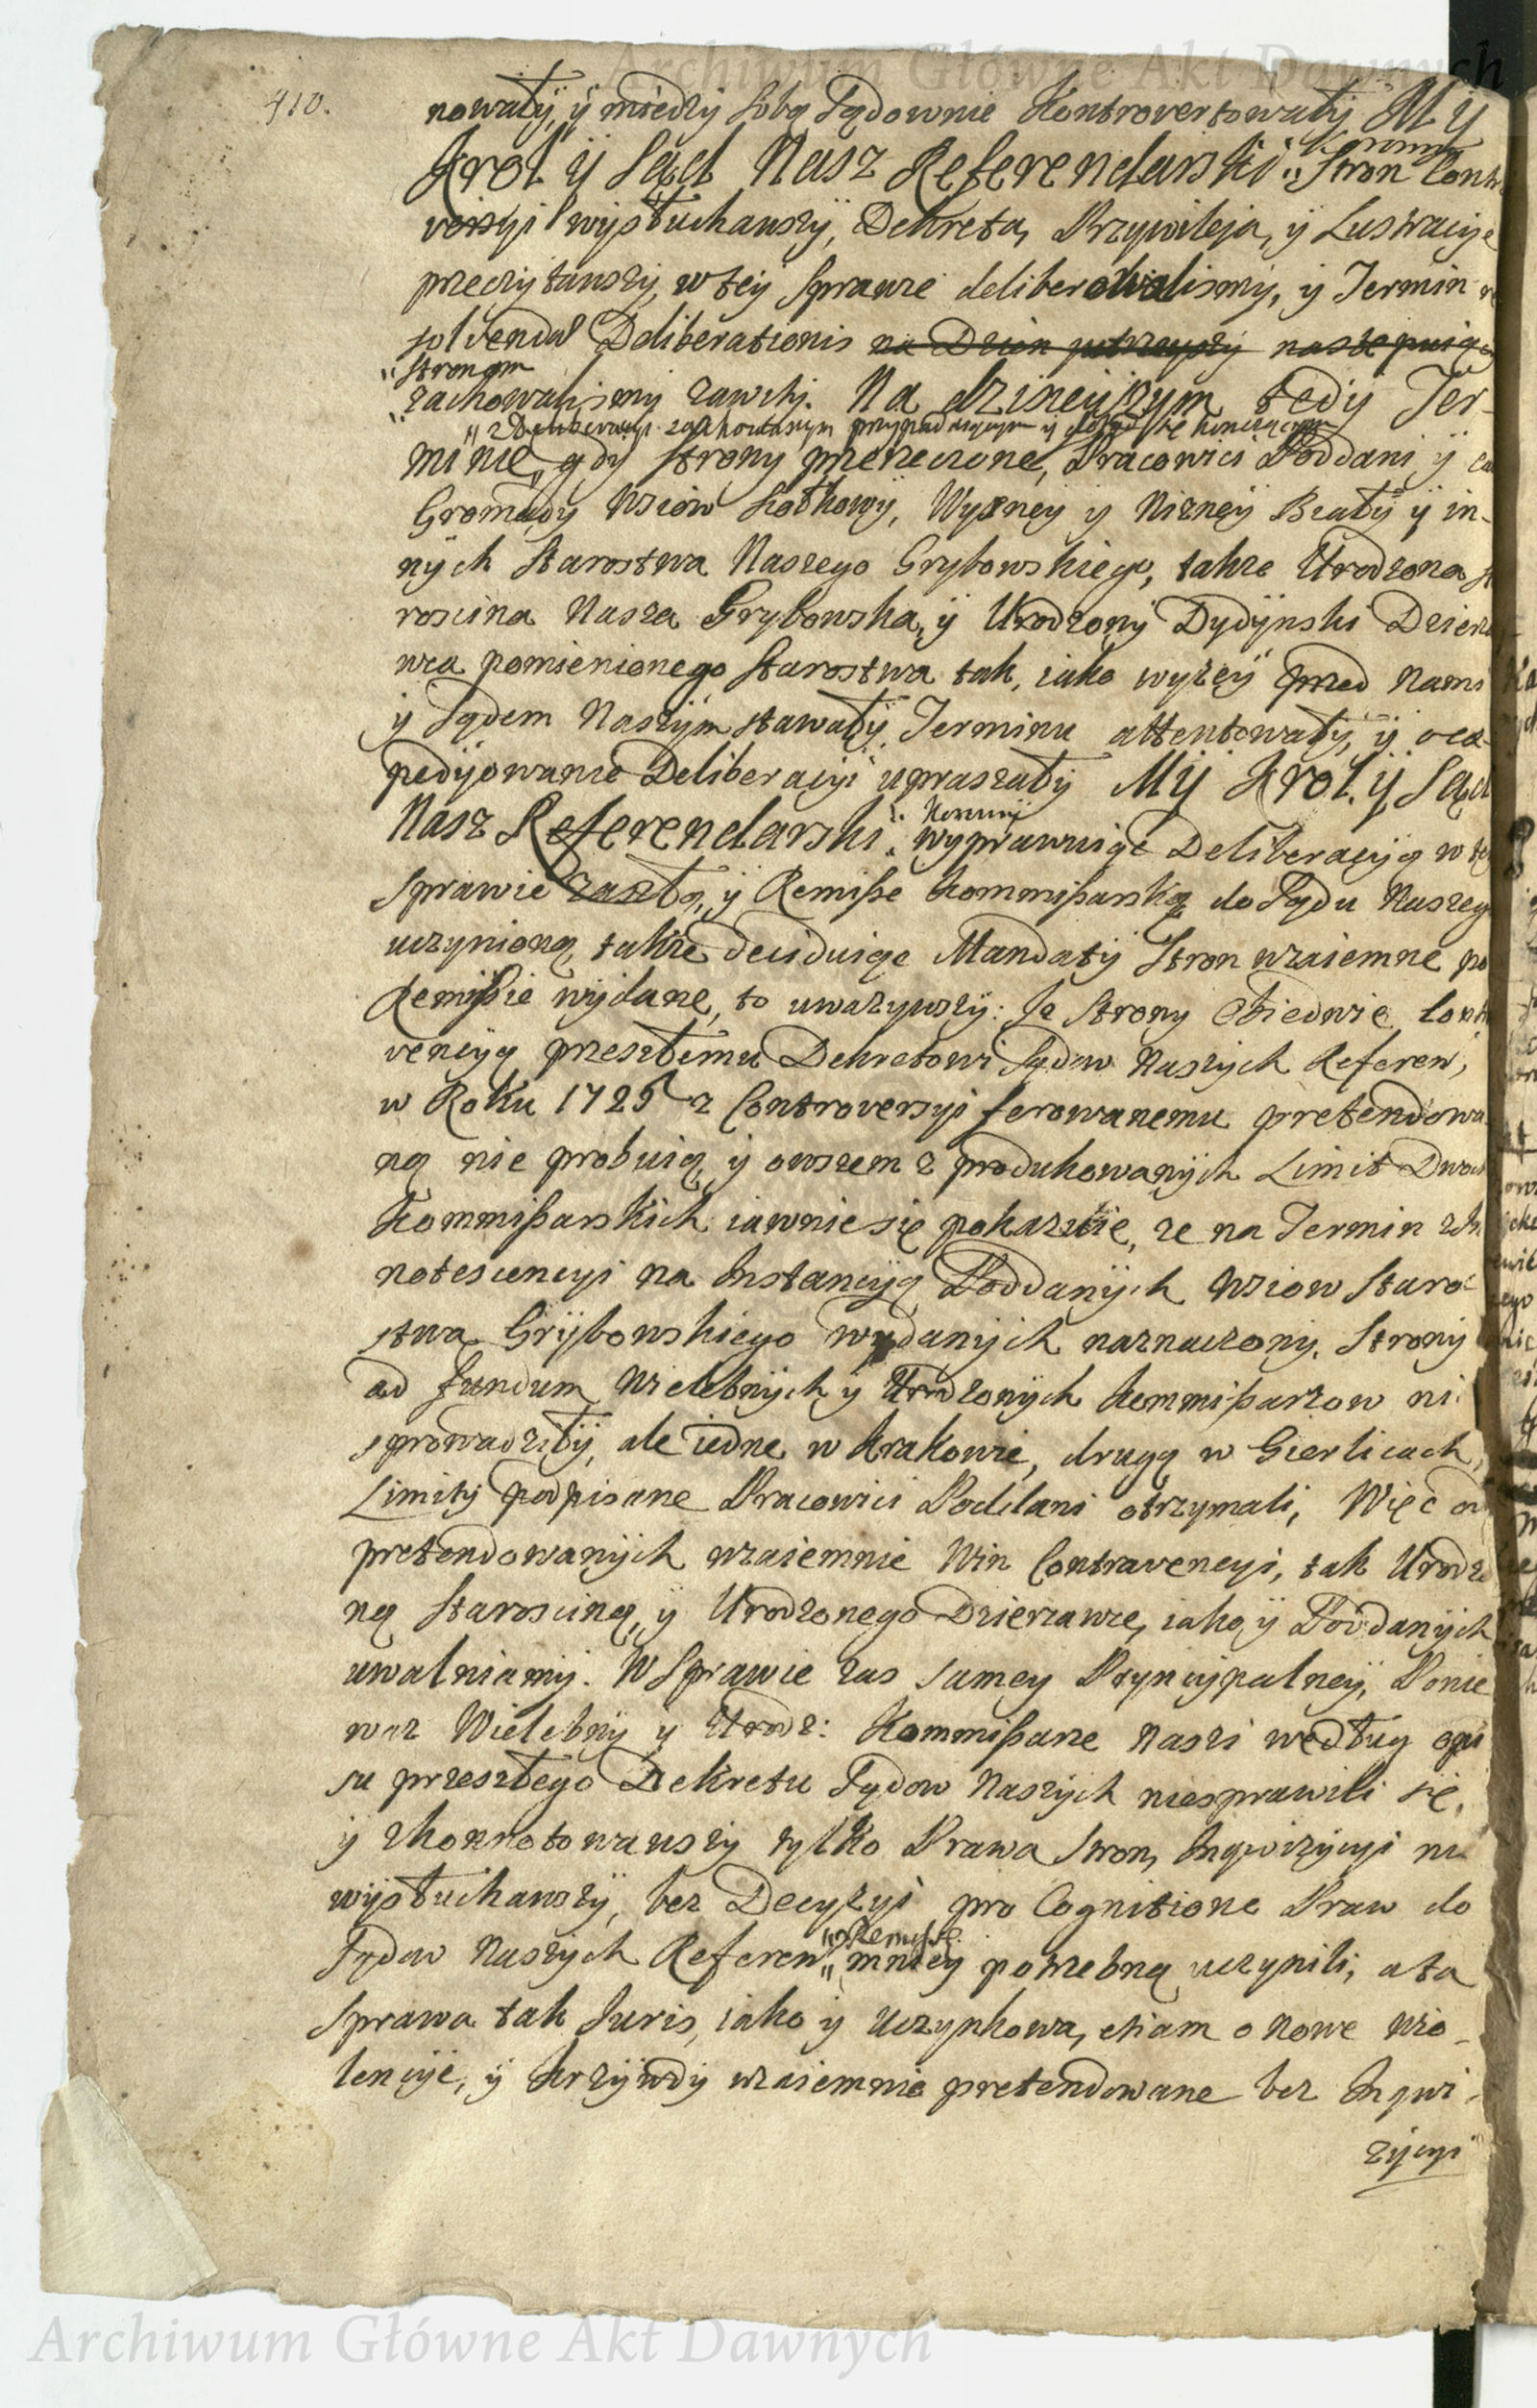 Archiwum Główne Akt Dawnych
410.
nowały, y między sobą Sądownie Kontrovertowały My
Krol y Sąd Nasz Referendarski Stron Contr
versyi wysłuchawszy, Dekreta, Przywileja, y Lustracye
przeczytawszy, w tey Sprawie deliberowalismy, y Termin
solvendae Deliberationis na Dzien następuiący
Stronom
zachowalismy zawity. Na dzisieyszym tedy Ter-
Deliberacyi zachowanym przypadaiącym y dotąd się konczącym
minie, gdy Strony przerzeczone, Pracowici Poddani y
Gromady Wsiow Siołkowy, Wyżney y Niżney Biały y in-
nych Starostwa Naszego Grybowskiego, także Urodzona
roscina Nasza Grybowska, y Urodzony Dydynski Dzierza
wca pomienionego Starostwa tak, iako wyżey przed Nami
y Sądem Naszym stawały Terminu attentowały, y
pedyowanie Deliberacyi upraszały My Krol y Sąd
Nasz Referendarski wyprawuiąc Deliberacyą w tey
Sprawie zaszłą, y Remisse Kommissarską do Sądu Naszego
uczynioną, także deciduiąc Mandaty Stron wzaiemne po
Remissie wydane, to uwazywszy: Ze Strony Obiedwie Contr
vencyą przeszłemu Dekretowi Sądow Naszych Referen,
w Roku 1725 z Controversyi ferowanemu pretendowa
ną nie probuią, y owszem z produkowanych Limit Dwoch
Kommissarskich iawnie się pokazuie, ze na Termin
notescencyi na Instancyą Poddanych Wsiow Staro
stwa Grybowskiego wydanych naznaczony, Strony
ad fundum Wielebnych y Urodzonych Kommissarzow ni
sprowadziły, ale iedne w Krakowie, drugą w Gierlicach,
Limity podpisane Pracowici Poddani otrzymali, Więc od
pretendowanych wzaiemnie Win Contravencyi, tak Urodzo
ną Staroscinę, y Urodzonego Dzierzawce, iako y Poddanych
uwalniamy. W Sprawie zas samey Pryncypalney, Ponie
waz Wielebny y Urodz: Kommissarze Naszi według opi
su przeszłego Dekretu Sądow Naszych niesprawili się,
y zkonnotowawszy tylko Prawa Stron, Inqwizycyi nie
wysłuchawszy, bez Decyzyi pro Cognitione Praw do
Remisse
Sądow Naszych Referen mniey potrzebną uczynili, a ta
Sprawa tak Juris, iako y uczynkowa, etiam o nowe wio-
lencye, y krzywdy wzaiemnie pretendowane bez Inqwi-
zycyi
Archiwum Główne Akt Dawnych